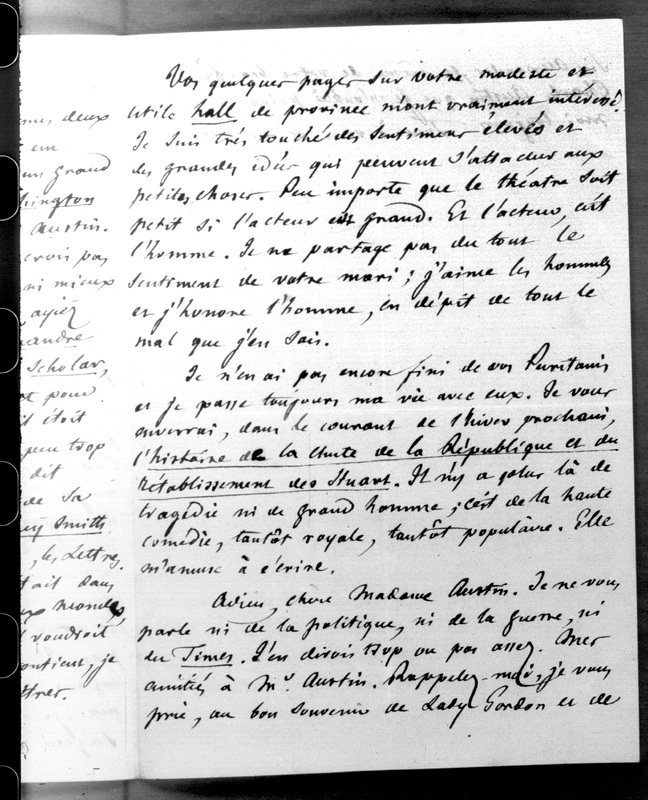 me, deux
un
un grand
hington
Austin.
crois pas
ni mieux
ayiez
xandre
Scholar,
st pour
il étoit
peu trop
dit
de sa
ey Smith,
, les Lettres.
tait dans
ux mondes,
l voudroit
ontient, je
ttrer.
Vos quelques pages sur votre modeste et
utile hall de province m'ont vraiment intéressé.
Je suis très touché des sentimens élevés et
des grandes idées qui peuvent s'attacher aux
petites choses. Peu importe que le théatre soit
petit si l'acteur est grand. Et l'acteur, c'est
l'homme. Je ne partage pas du tout le
sentiment de votre mari ; j'aime les hommes
et j'honore l'homme, en dépit de tout le
mal que j'en sais.
Je n'en ai pas encore fini de vos Puritains
et je passe toujours ma vie avec eux. Je vous
enverrai, dans le courant de l'hiver prochain,
l'histoire de la chute de la République et du
rétablissement des Stuart. Il n'y a plus là de
tragédie ni de grand homme ; c'est de la haute
comédie, tantôt royale, tantôt populaire. Elle
m'amuse à écrire.
Adieu, chère Madame Austin. Je ne vous
parle ni de la politique, ni de la guerre, ni
du Times. J'en dirois trop ou pas assez. Mes
amitiés à Mr. Austin. Rappelez-moi, je vous
prie, au bon souvenir de Lady Gordon et de